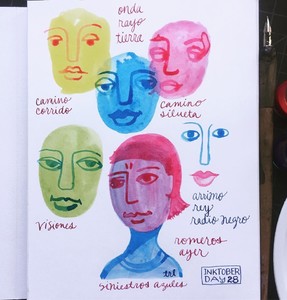 onda
rayo
tierra
camino
corrido
camino
silueta
visiones
arrimo
rey
radio negro
romeros
ayer
siniestros azules
trl
INKTOBER
DAY 28